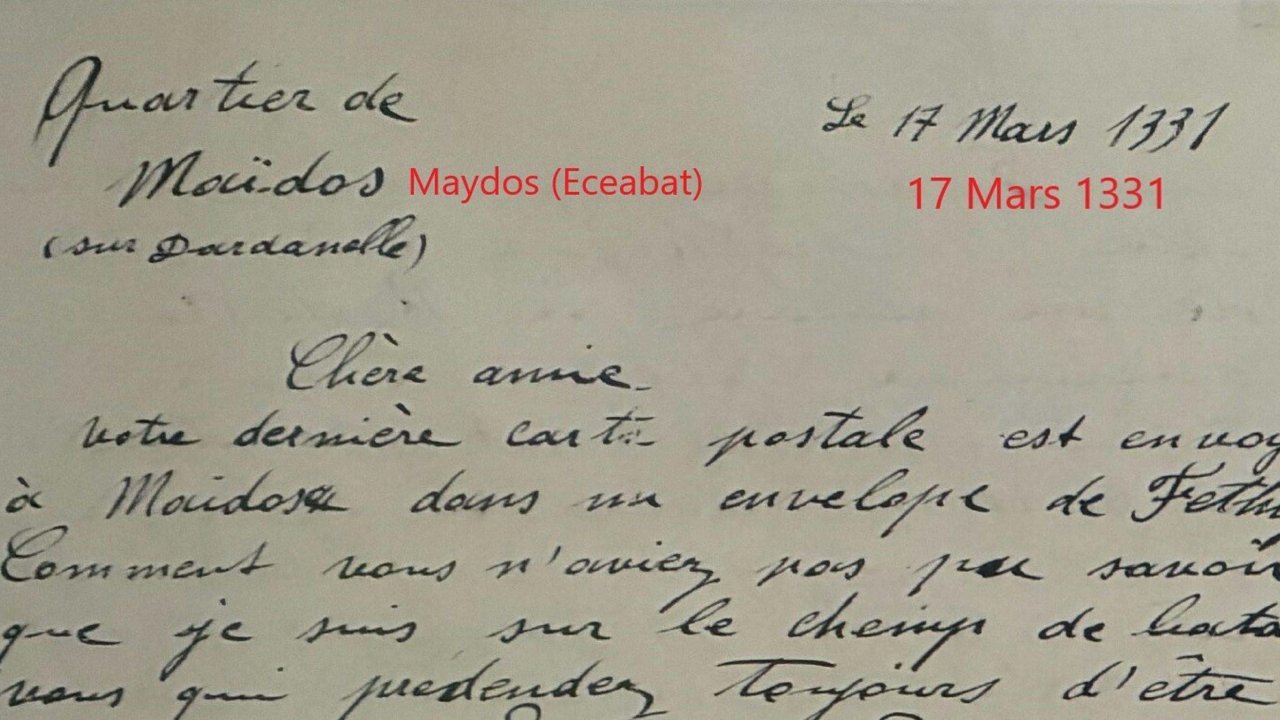 Quartier de
Le 17 Mars 1331
Maïdos Maydos (Eceabat)
17 Mars 1331
(sur Dardanelle)
Chère amie
votre dernière carte postale est envoy
à Maidos dans un envelope de Feth
Comment vous n'aviez pas pu savoir
que je suis sur le chemp de bata
vous qui predendez toujours d'être